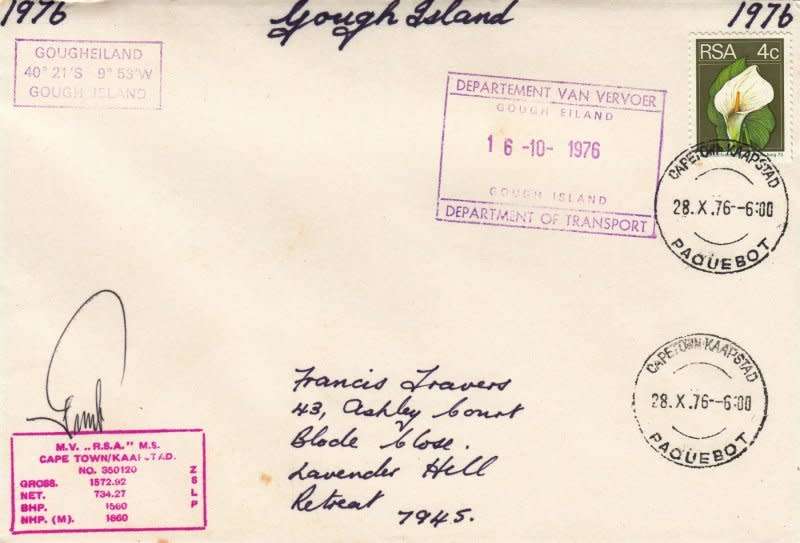 1976 Gough Island 1976
GOUGHEILAND
40° 21'S 9° 53'W
GOUGH ISLAND
DEPARTEMENT VAN VERVOER
GOUGH EILAND
16-10-1976
GOUGH ISLAND
DEPARTMENT OF TRANSPORT
RSA 4c
CAPE TOWN-KAAPSTAD
28.X.76--6:00
PAQUEBOT
CAPE TOWN-KAAPSTAD
28.X.76--6:00
PAQUEBOT
Francis Travers
43, Ashley Court
Blode Close.
Lavender Hill
Retreat 7945.
M.V. „R.S.A." M.S.
CAPE TOWN/KAAPSTAD.
NO. 350120
GROSS. 1572.92
NET. 734.27
BHP. 1560
NHP. (M). 1660
ZSLP